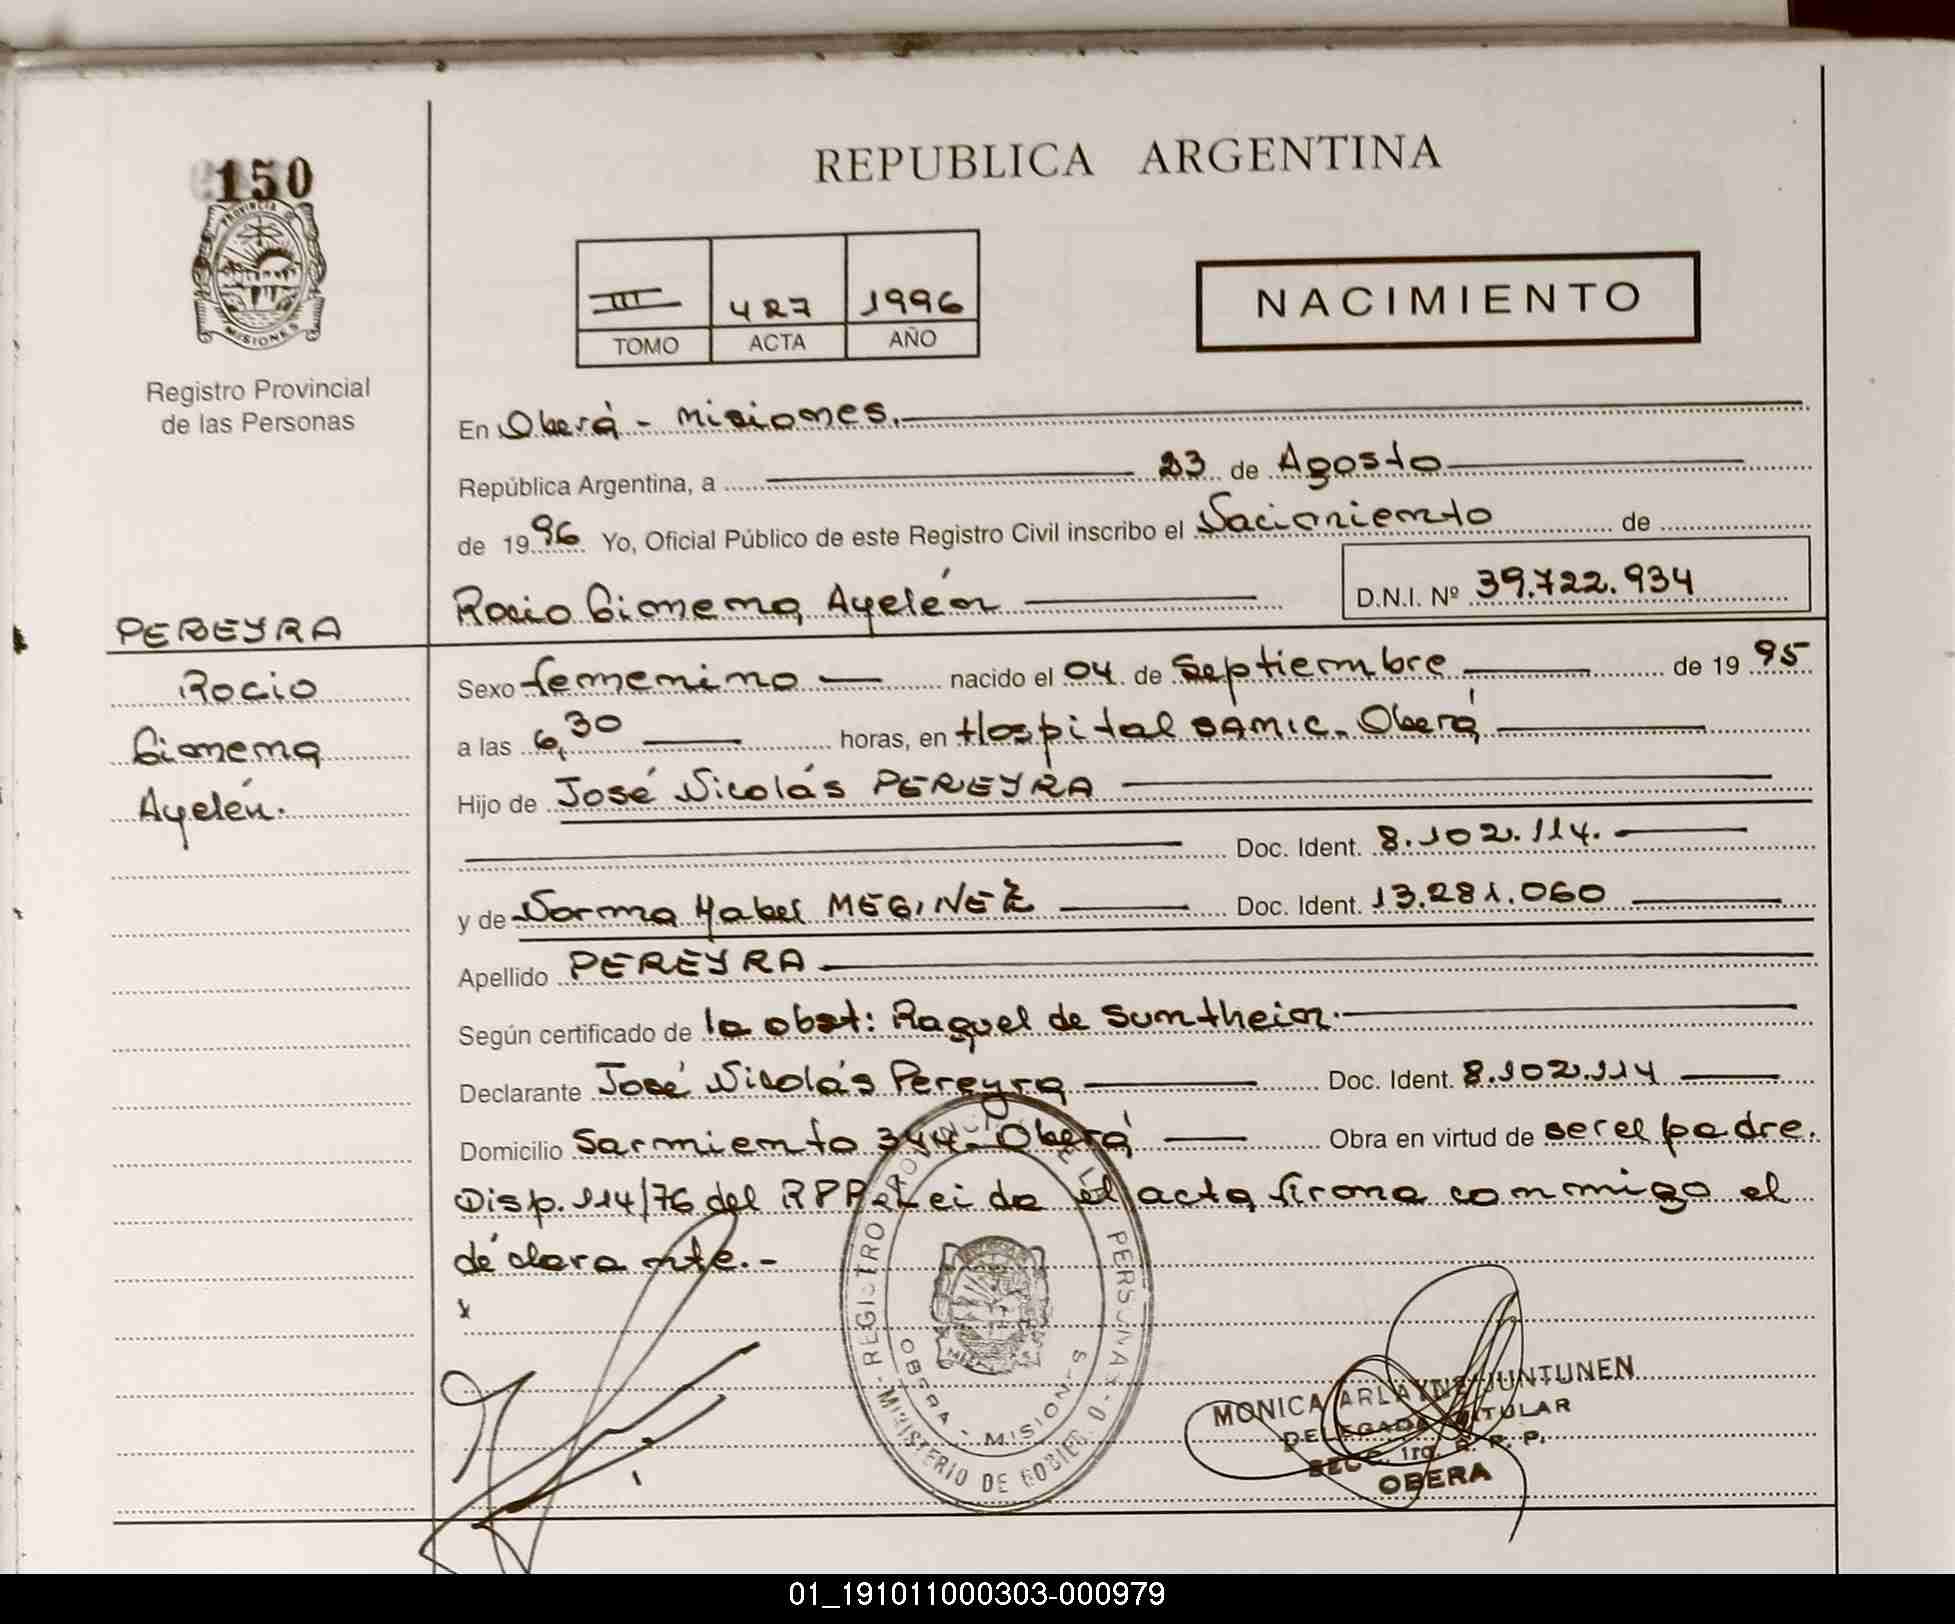 150
PROVINCIA DE
MISIONES
Registro Provincial
de las Personas
REPUBLICA ARGENTINA
III 427 1996
TOMO ACTA AÑO
NACIMIENTO
En Oberá - Misiones.
República Argentina, a 23 de Agosto
de 1996 Yo, Oficial Público de este Registro Civil inscribo el Nacimiento de
Rocio Gimena Ayelén D.N.I. Nº 39.722.934
PEREYRA
Rocio
Gimena
Ayelén.
Sexo femenino nacido el 04 de Septiembre de 1995
a las 6,30 horas, en Hospital SAMIC. Oberá
Hijo de José Nicolás PEREYRA
Doc. Ident. 8.102.114.
y de Norma Mabel Doc. Ident. 13.281.060
Apellido PEREYRA
Según certificado de la obst: Raquel de Suntheim.
Declarante José Nicolás Pereyra Doc. Ident. 8.102.114
Domicilio Sarmiento 344. Oberá Obra en virtud de ser el padre.
Disp. 114/76 del RPP. Leida el acta firma conmigo el
declarante.-
x
REGISTRO PROVINCIAL DE LAS PERSONAS
OBERA - MISIONES
MINISTERIO DE GOBIERNO
MONICA ARLAYNE JUNTUNEN
DELEGADA TITULAR
SECC. 1ra. R. P. P.
OBERA
01_191011000303-000979